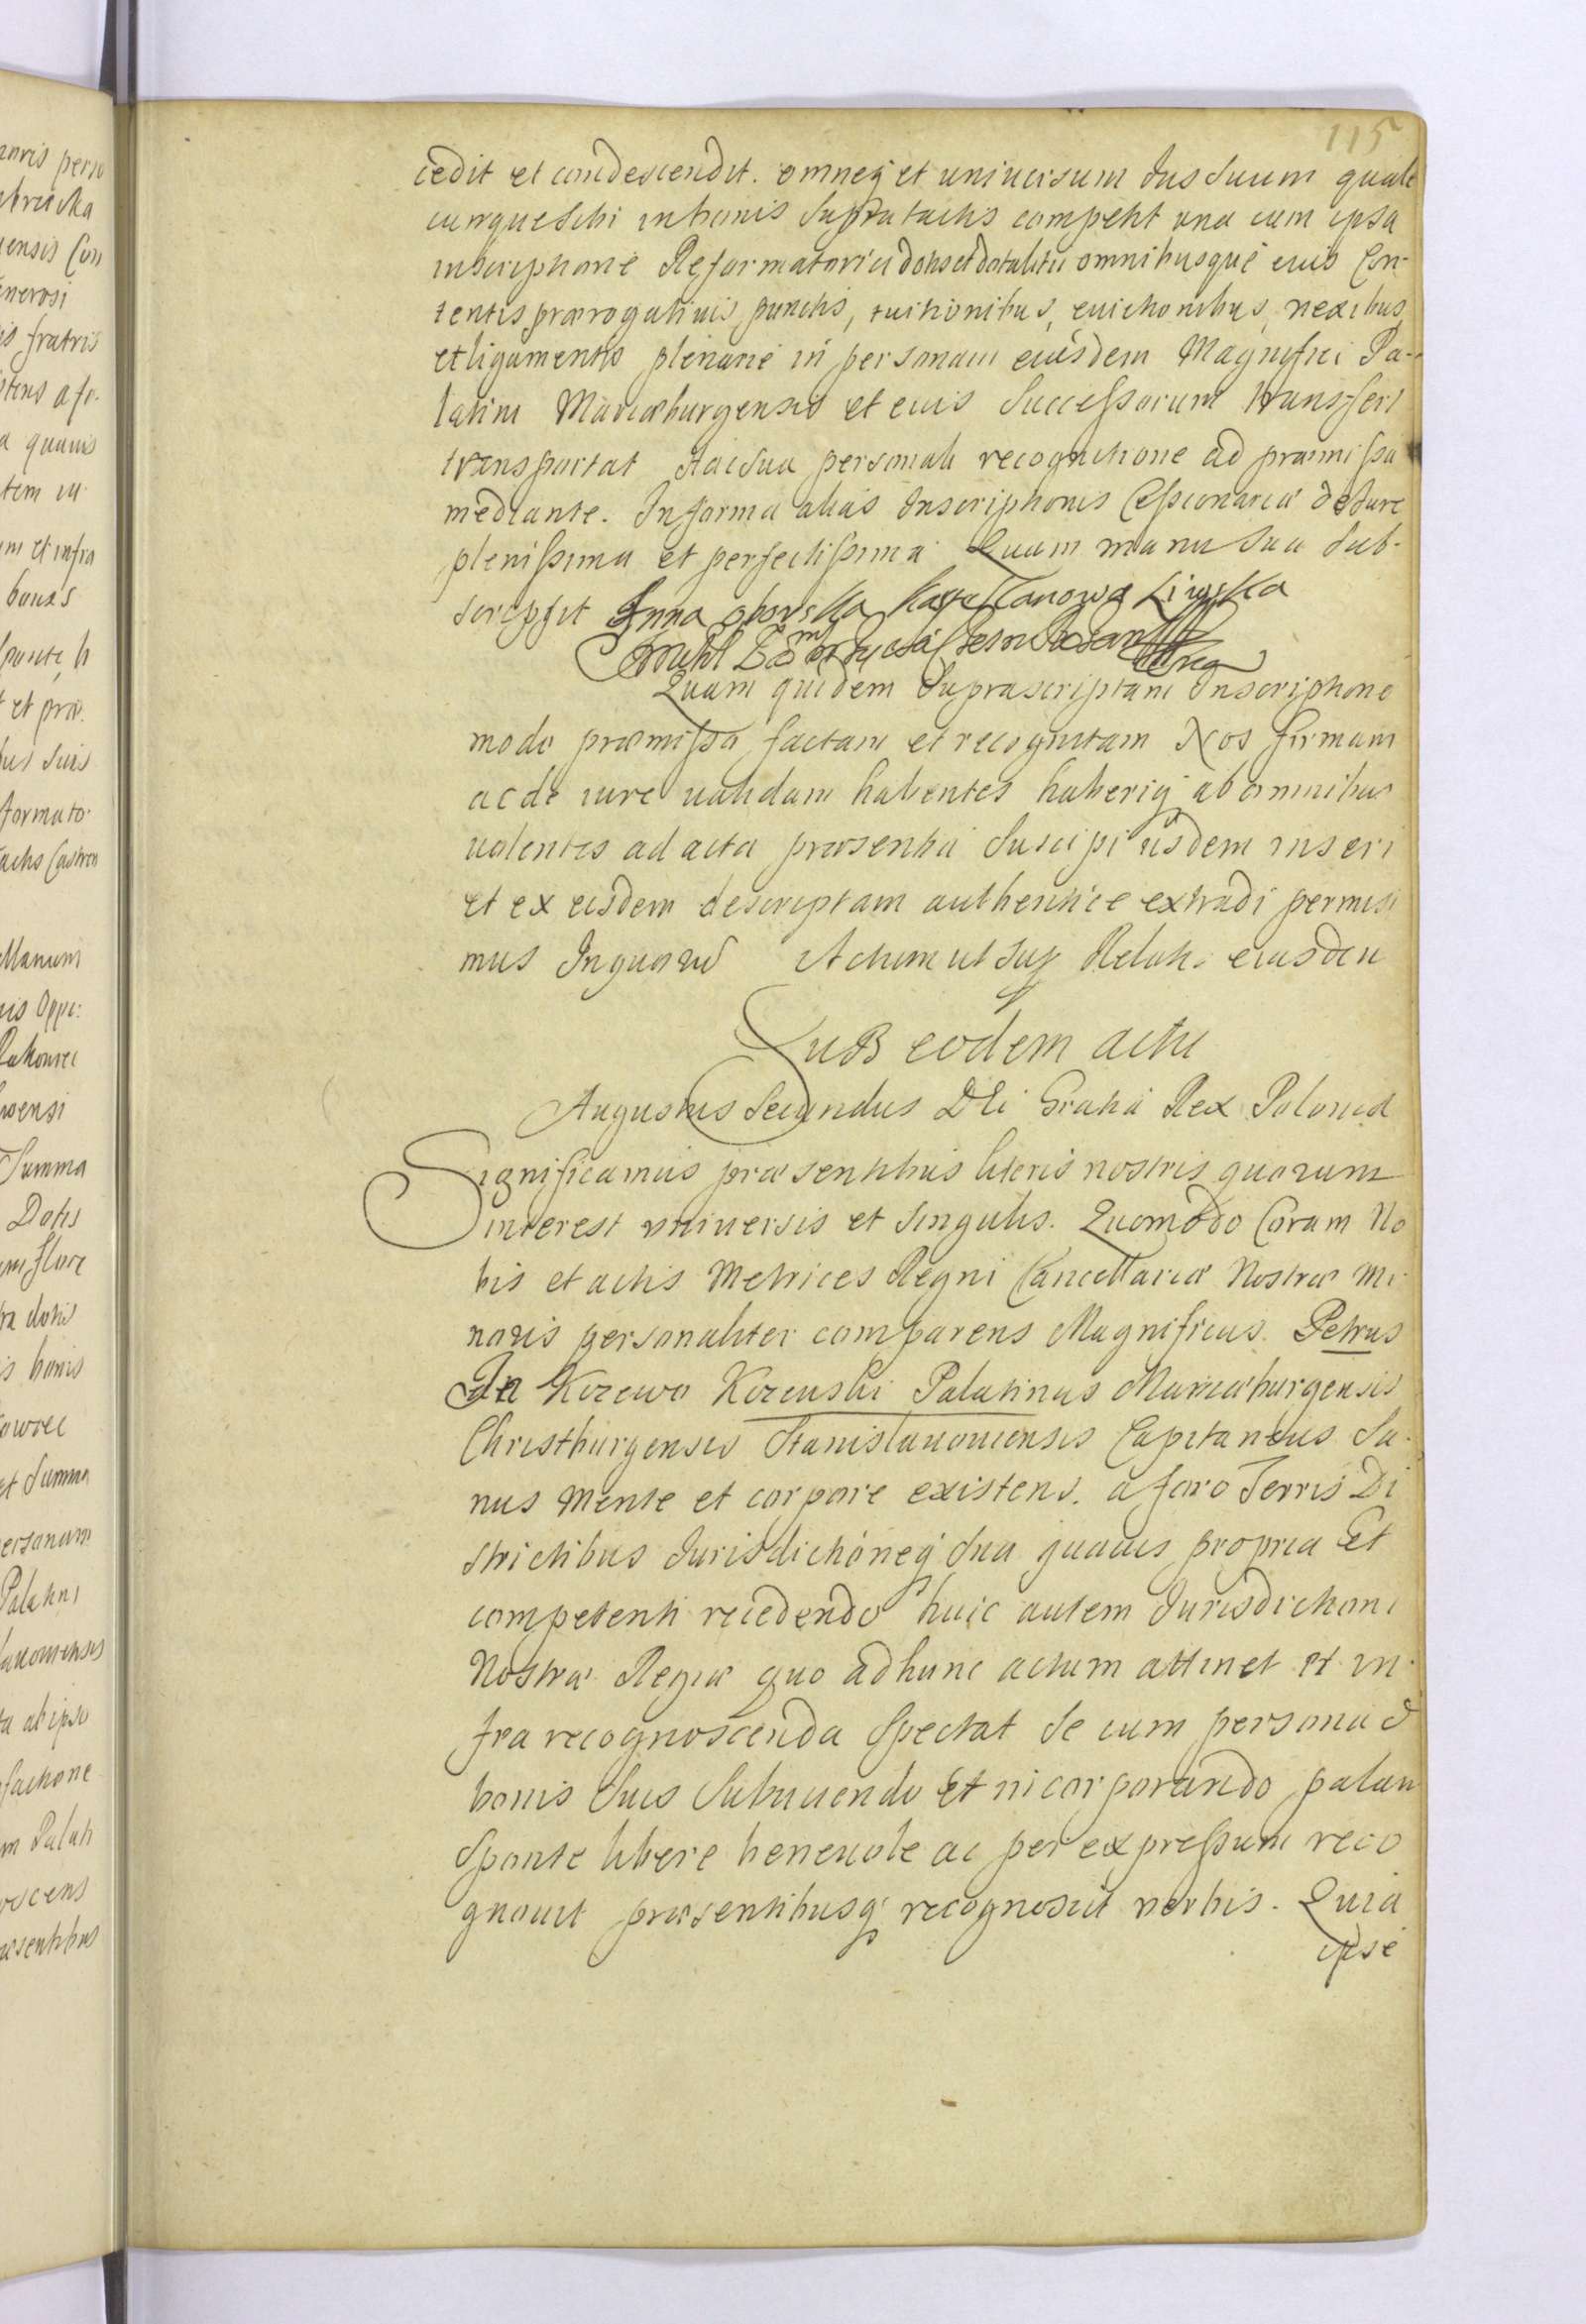 115
cedit et condescendit. omneq et uniuersum Jus Suum quale
cunque Sibi in bonis Supratactis competit una cum ipsa
inscriptione Reformatoria dotis et dotalitii omnibusque euis Con-
tentis prærogatiuis punctis, tuitionibus, euictionibus, nexibus
et ligamentis plenarie in personam eiusdem Magnifici Pa-
latini Mariæburgensis et euis Successorum transfert
transportat Hac sua personali recognitione ad præmissa
mediante. In forma alias Inscriptionis Cessionariæ de Jure
plenissima et perfectissima Quam manu sua Sub-
scripsit Anna oborska Kasztellanowa Liwska
Quam quidem Suprascriptam Inscriptione
modo præmisso factam et recognitam Nos firmam
ac de iure ualidam habentes haberiq ab omnibus
uolentes ad acta præsentia Suscipi iisdem inseri
et ex eisdem descriptam authentice extradi permisi
mus In quorum Actum ut sup Relatio eiusdem
SuB eodem actu
Augustus Secundus DEi Gratia Rex Poloniæ
Significamus præsentibus literis nostris quorum
interest vniuersis et singulis. Quomodo Coram No
bis et actis Metrices Regni Cancellariæ Nostræ Mi
noris personaliter comparens Magnificus Petrus
In Kozewo Kozewski Palatinus Mariæburgensis
Christburgensis Stanislauouiensis Capitaneus Sa-
nus mente et corpore existens. a foro Terris Di
strictibus Jurisdictioneq sua quauis propria Et
competenti recedendo huic autem Jurisdictioni
Nostræ Regiæ quo ad hunc actum attinet et in-
fra recognoscenda Spectat Se cum persona &
bonis Suis Subiiciendo Et incorporando palam
Sponte libere beneuole ac per expressum reco
gnouit præsentibusq recognoscit verbis. Quia
ipse